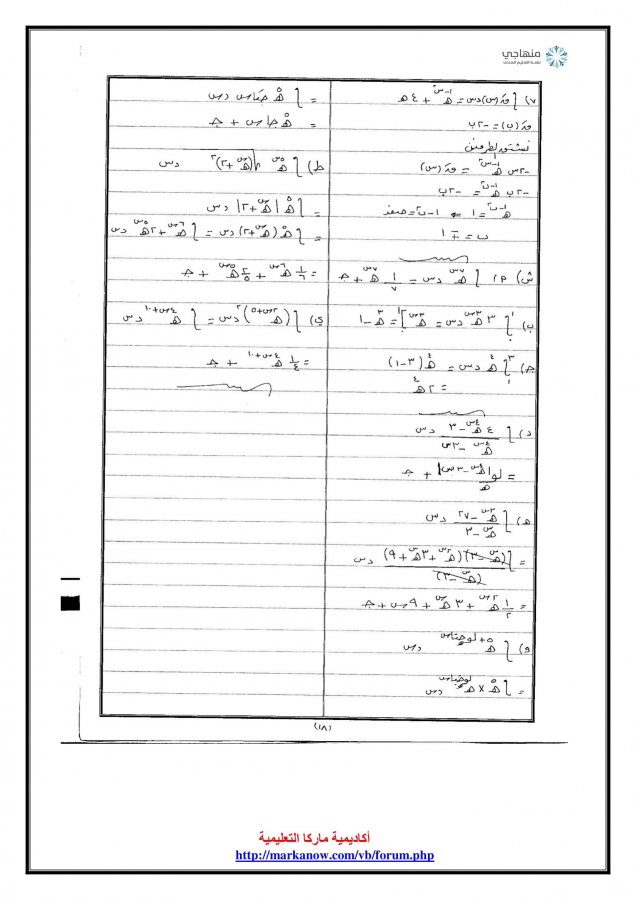 منهاجي
متعة التعليم الهادف
٧) ∫ق(س)دس = هـ^(١-س٢) + ٤هـ
قَ(ب) = -٢ب
نشتق الطرفين
-٢س هـ^(١-س٢) = ق(س)
-٢ب هـ^(١-ب٢) = -٢ب
هـ^(١-ب٢) = ١ ← ١-ب٢ = صفر
ب = ∓١
ش) ٢) ∫هـ^(٧س) دس = ١/٧ هـ^(٧س) + جـ
ب) ∫٣هـ^(٣س) دس = هـ^(٣س)] = هـ^٣ - ١
جـ) ∫هـ^٤ دس = هـ^٤(٣-١)
= ٢هـ^٤
د) ∫(٤هـ^(٤س) - ٣)/(هـ^(٤س) - ٣س) دس
= لو|هـ^(٤س) - ٣س| + جـ
هـ
هـ) ∫(هـ^(٣س) - ٢٧)/(هـ^س - ٣) دس
= ∫(هـ^س - ٣)(هـ^(٢س) + ٣هـ^س + ٩)/(هـ^س - ٣) دس
= ١/٢ هـ^(٢س) + ٣هـ^س + ٩س + جـ
و) ∫هـ^(٥+لو جتاس) دس
= ∫هـ^٥ × هـ^(لو جتاس) دس
= ∫هـ^٥ جتاس دس
= هـ^٥ جاس + جـ
ط) ∫هـ^(٥س) √(هـ^س + ٢)^٢ دس
= ∫هـ^(٥س) |هـ^س + ٢| دس
= ∫هـ^(٥س) (هـ^س + ٢) دس = ∫هـ^(٦س) + ٢هـ^(٥س) دس
= ١/٦ هـ^(٦س) + ٢/٥ هـ^(٥س) + جـ
ي) ∫(هـ^(٢س+٥))^٢ دس = ∫هـ^(٤س+١٠) دس
= ١/٤ هـ^(٤س+١٠) + جـ
(١٨)
أكاديمية ماركا التعليمية
http://markanow.com/vb/forum.php